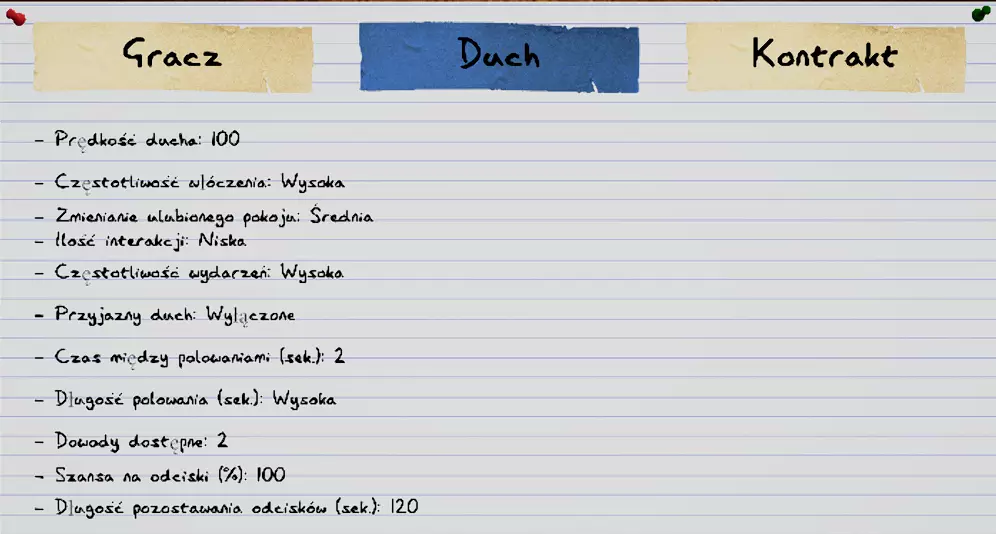 Gracz
Duch
Kontrakt
- Prędkość ducha: 100
- Częstotliwość włóczenia: Wysoka
- Zmienianie ulubionego pokoju: Średnia
- Ilość interakcji: Niska
- Częstotliwość wydarzeń: Wysoka
- Przyjazny duch: Wyłączone
- Czas między polowaniami (sek.): 2
- Długość polowania (sek.): Wysoka
- Dowody dostępne: 2
- Szansa na odciski (%): 100
- Długość pozostawania odcisków (sek.): 120